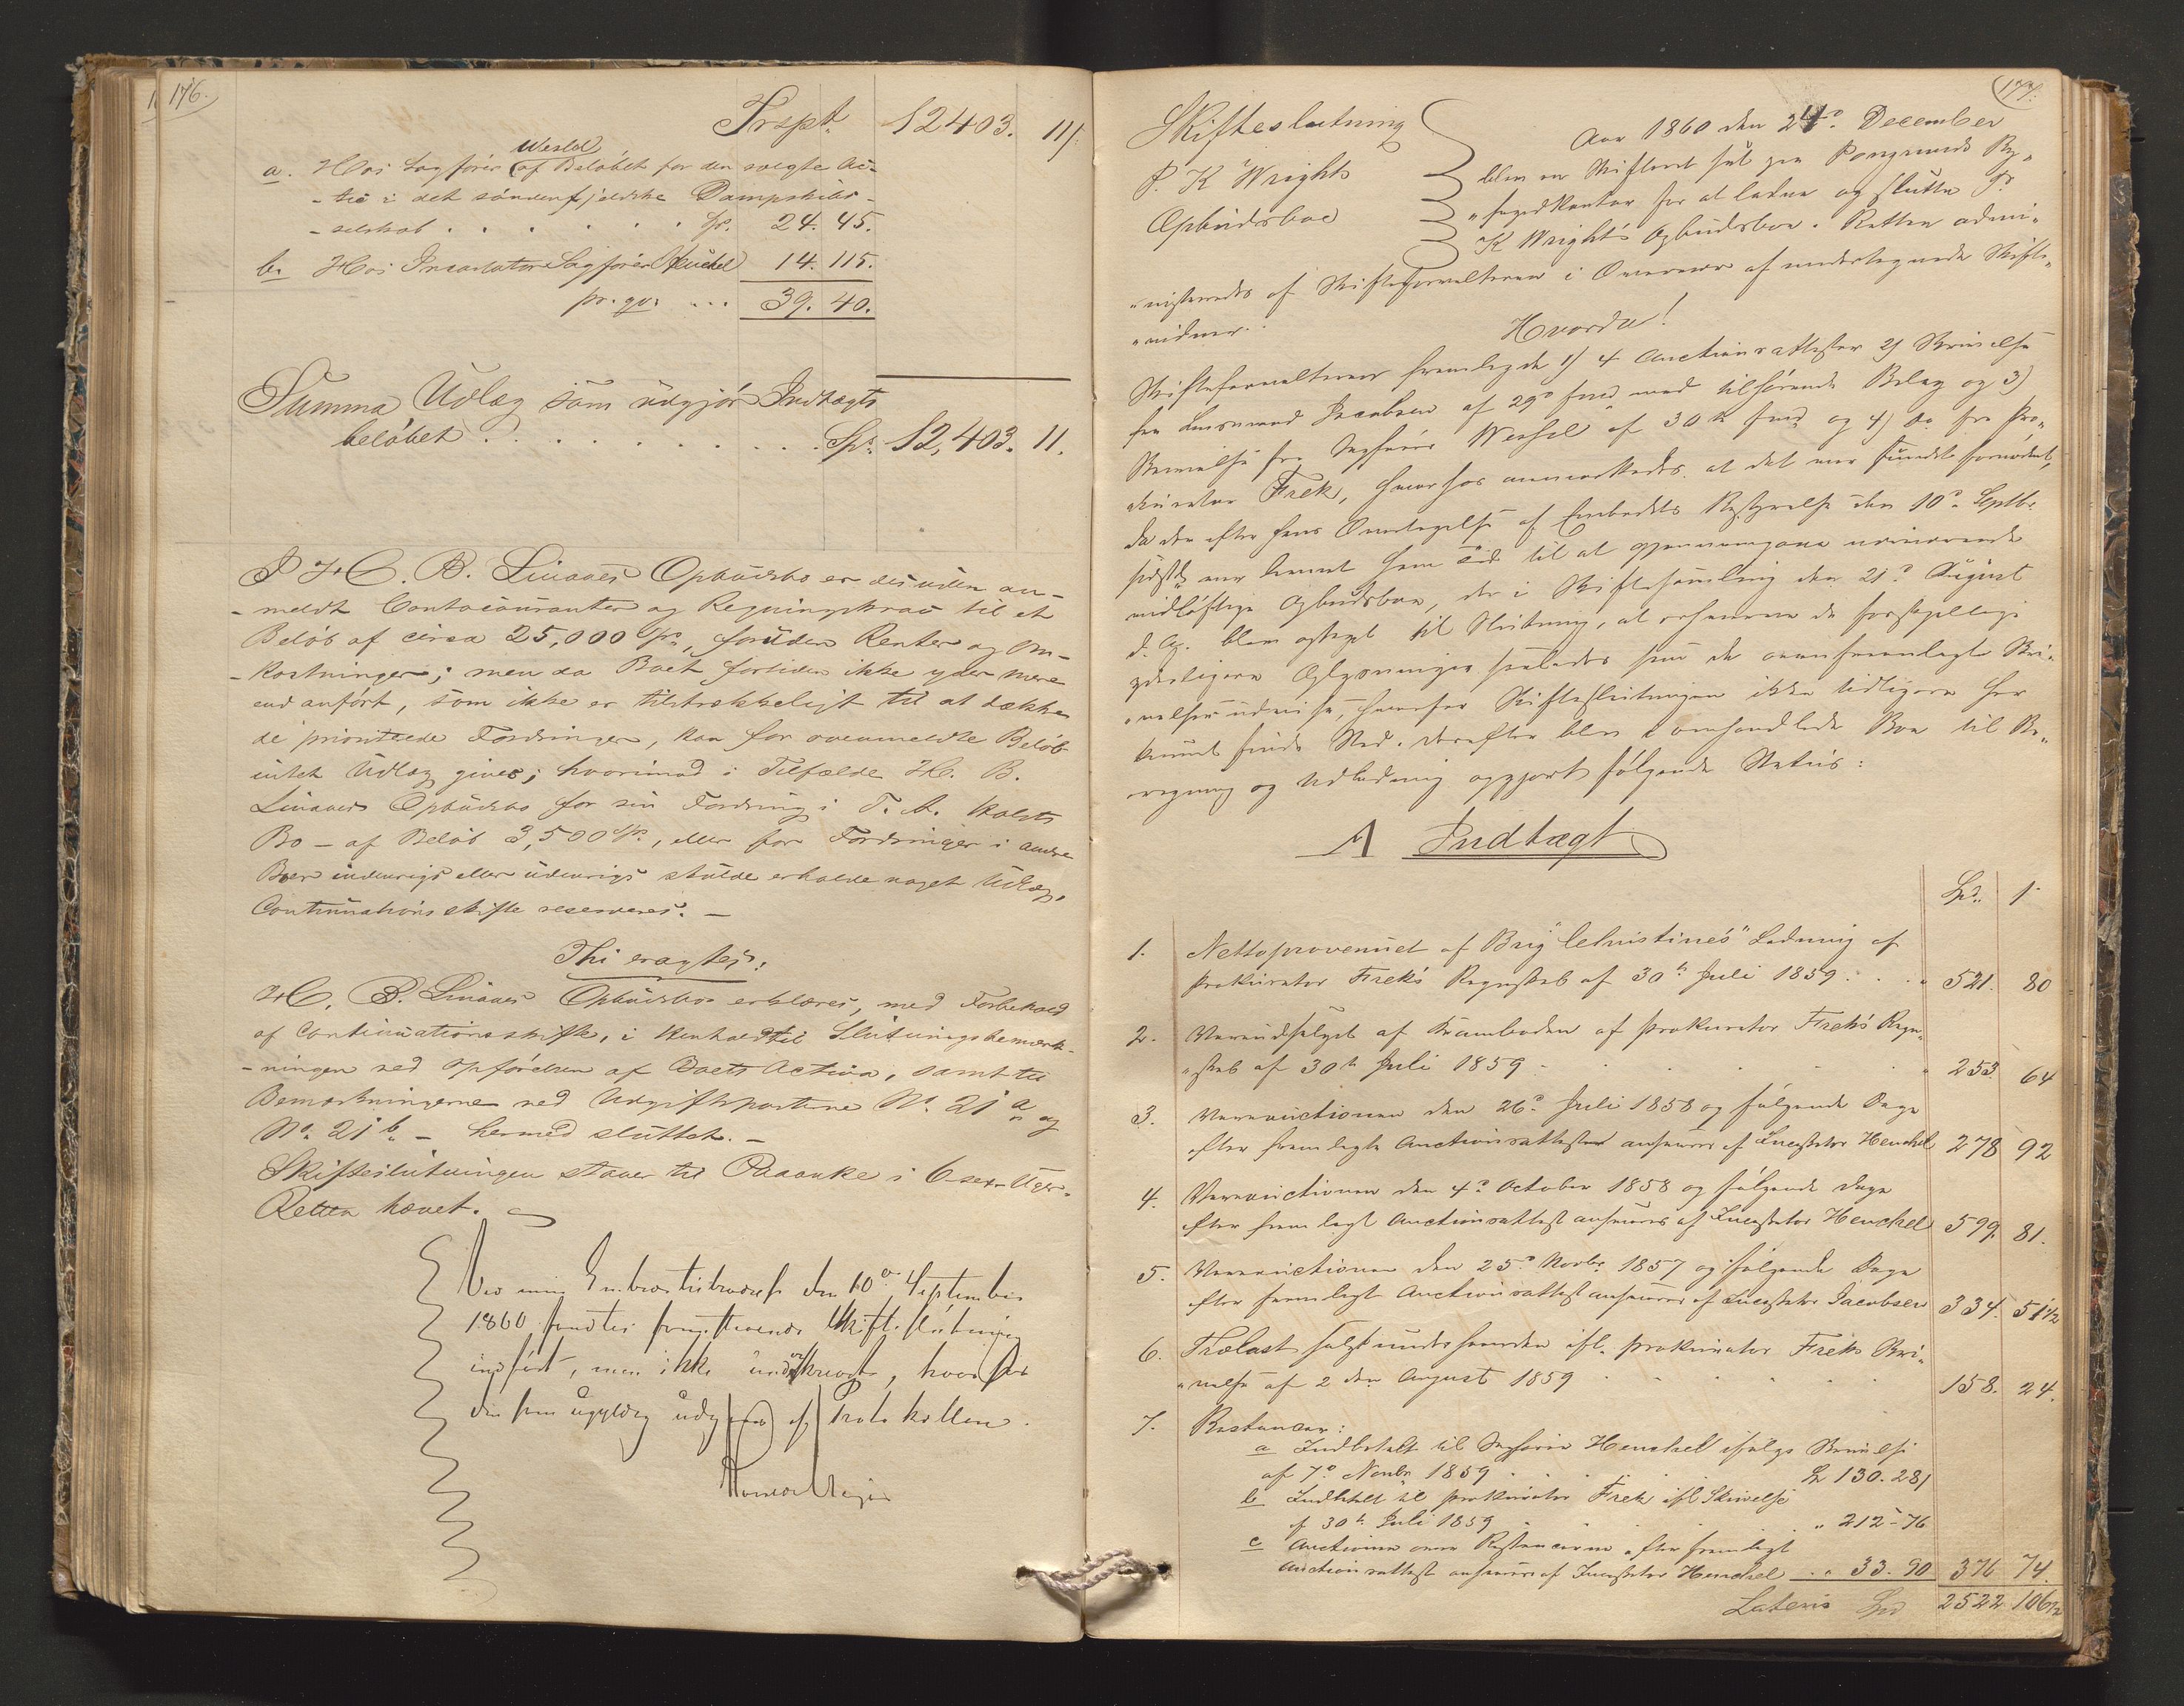 176.
Trspt. 12403. 111.
Wessel
a. Hos Sagfører af Beløbet for den solgte Ac-
- tie i det søndenfjeldske Dampskibs-
- selskab . . . . . . Sp. 24. 45.
b. Hos Incassator Sagfører Heuchel 14. 115.
pr. qv. ... 39. 40.
Summa Udlæg som udgjør Indtægts
beløbet . . . . . . . . Sp. 12,403. 11.
I H. B. Linaaes Opbudsbo er desuden an-
- meldt Contocouranter og Regningskrav til et
Beløb af circa 25,000 Sp., foruden Renter og Om-
- kostninger; men da Boet fortiden ikke yder mere
end anført, som ikke er tilstrækkeligt til at dække
de prioriterede Fordringer, kan for ovenmeldte Beløb
intet Udlæg gives; hvorimod i Tilfælde H. B.
Linaaes Opbudsbo for sin Fordring i T. A. Holsts
Bo - af Beløb 3,500 Sp., eller for Fordringer i andre
Boer indenrigs eller udenrigs skulde erholde noget Udlæg,
Continuationsskifte reserveres. -
Thi eragtes:
H. B. Linaaes Opbudsbo erklæres, med Forbehold
af Continuationsskifte, i Henhold til Slutningsbemærk-
- ningen ved Opførelsen af Boets Activa, samt til
Bemærkningerne ved Udgiftsposterne No. 21 a og
No. 21 b - hermed sluttet. -
Skifteslutningen staaer til Paaanke i 6 sex Uger.
Retten hævet.
Ved min Embedstiltrædelse den 10de September
1860 fandtes foranstaaende Skifteslutning
indført, men ikke underskrevet, hvorfor
den som ugyldig udgaaer af Protokollen.
177.
Skifteslutning
P. K Wrights
Opbudsboe
Aar 1860 den 24de December
blev en Skifteret sat paa Porsgrunds By-
"fogedkontor for at lade og slutte P.
K Wright's Opbudsboe. Retten admi-
"nistreredes af Skifteforvalteren i Overvær af undertegnede Skifte-
"vidner.
Hvorda!
Skifteforvalteren fremlagde 1) 4 Auctionsattester 2) Skrivelse
fra Lensmand Jacobsen af 29de f.M. med tilhørende Bilag og 3)
Skrivelse fra Sagfører Wessel af 30te f.M. og 4) do fra Pro-
"kurator Frek, hvorhos anmærkedes at det var fundet fornødent,
da der efter hans Overtagelse af Embedets Bestyrelse den 10de Septbr.
sidstl. var levnet ham Tid til at gjennemgaae nærværende
vidløftige Opbudsboe, der i Skiftesamling den 21de August
d. A. blev optaget til Slutning, at erhverve de forskjellige
yderligere Oplysninger saaledes som de ovenfremlagte Skri-
"velser udvise, hvorfor Skifteslutningen ikke tidligere har
kunnet finde Sted. Derefter blev i omhandlede Boe til Be-
"regning og Udlodning opgjort følgende Status:
A Indtægt
Spd. ſ
1. Nettoprovenuet af Brig "Christine's" Ladning af
Prokurator Frek's Regnskab af 30te Juli 1859 . . . " 521. 80
2. Vareudsalget af Krambaden af Prokurator Frek's Regn-
"skab af 30te Juli 1859 . . . . . " 253. 64
3. Vareauctionen den 26de Juli 1858 og følgende Dage
efter fremlagte Auctionsattest ansvares af Incassator Henchel 278 92
4. Vareauctionen den 4de October 1858 og følgende Dage
efter fremlagt Auctionsattest ansvares af Incassator Henchel 599. 81.
5. Vareauctionen den 25de Novbr. 1857 og følgende Dage
efter fremlagt Auctionsattest ansvares af Incassator Jacobsen 334. 51 1/2
6. Trælast solgt underhaanden ifl. Prokurator Freks Skri-
"velse af 2 den August 1859 . . . . . . 158. 24.
7. Restancer:
a Indbetalt til Sagfører Henchel ifølge Skrivelse
af 7de Novbr 1859 . . . . Sp 130. 28
b Indbetalt til Prokurator Frek ifl Skrivelse
af 30te Juli 1859 . . . . " 212 - 76
c Auctionen over Restancerne efter fremlagt
Auctionsattest ansvares af Incassator Henchel . " 33. 90 376 74.
Lateris Spd 2522 106 1/2